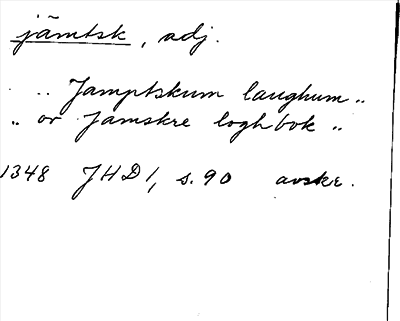 jämtsk, adj.
.. Jamptskum laughum ..
.. or Jamskre loghbok ..
1348 JHD 1, s. 90 avskr.